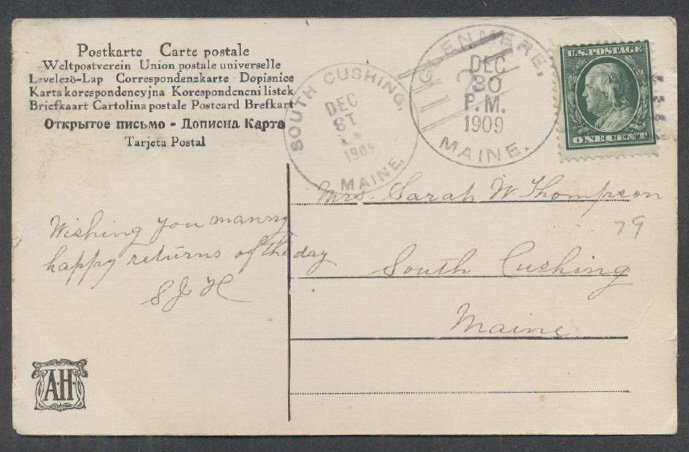 Postkarte Carte postale
Weltpostverein Union postale universelle
Levelezö-Lap Correspondenzkarte Dopisnice
Karta korespondencyjna Korespondencni listek
Briefkaart Cartolina postale Postcard Brefkort
Открытое письмо - Дописна Карта
Tarjeta Postal
SOUTH CUSHING,
DEC
31
1909
MAINE.
GLENMERE,
DEC
30
P.M.
1909
MAINE.
U.S. POSTAGE
ONE CENT
Mrs. Sarah W Thompson
79
South Cushing
Maine
Wishing you manny
happy returns of the day
S J H
AH